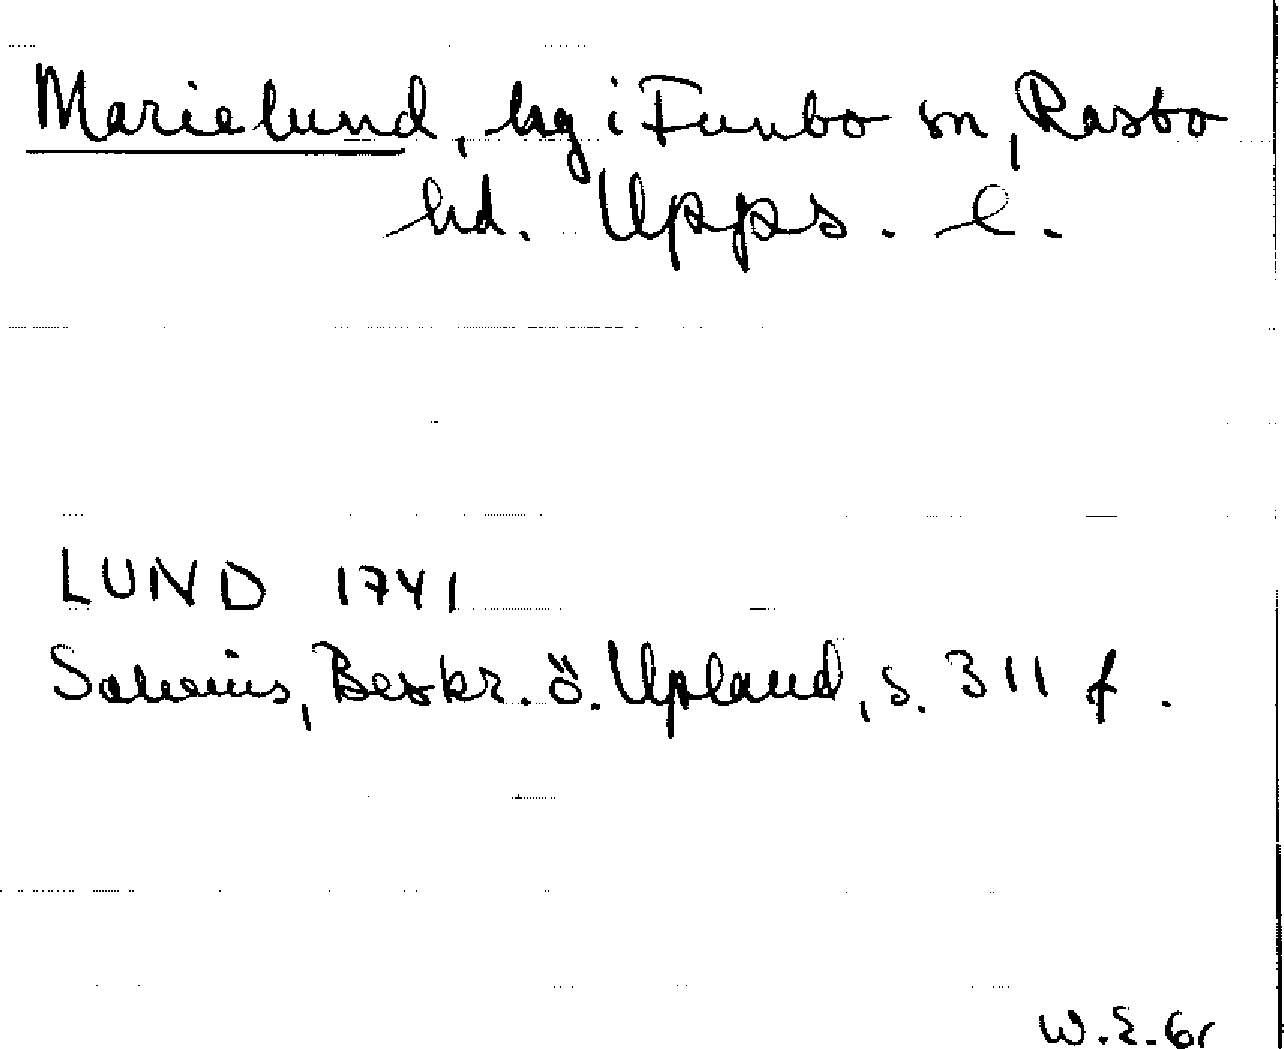 Marielund, hg i Funbo sn, Rasbo
hd. Upps. l.
LUND 1741
Salvius, Beskr. ö. Upland, s. 311 f.
W.E.